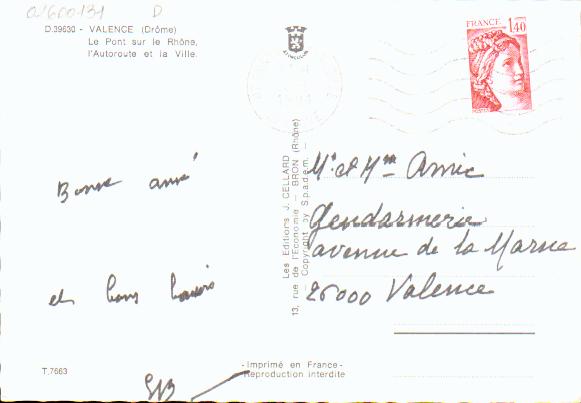 D.39630 - VALENCE (Drôme)
Le Pont sur le Rhône,
l'Autoroute et la Ville.
FRANCE 1,40
Bonne année
et bons baisers
Mr et Mme Amic
Gendarmerie
avenue de la Marne
26000 Valence
Les Editions J. CELLARD
13, rue de l'Economie - BRON (Rhône)
- Copyright by S.p.a.d.e.m. -
T.7663
- Imprimé en France -
Reproduction interdite